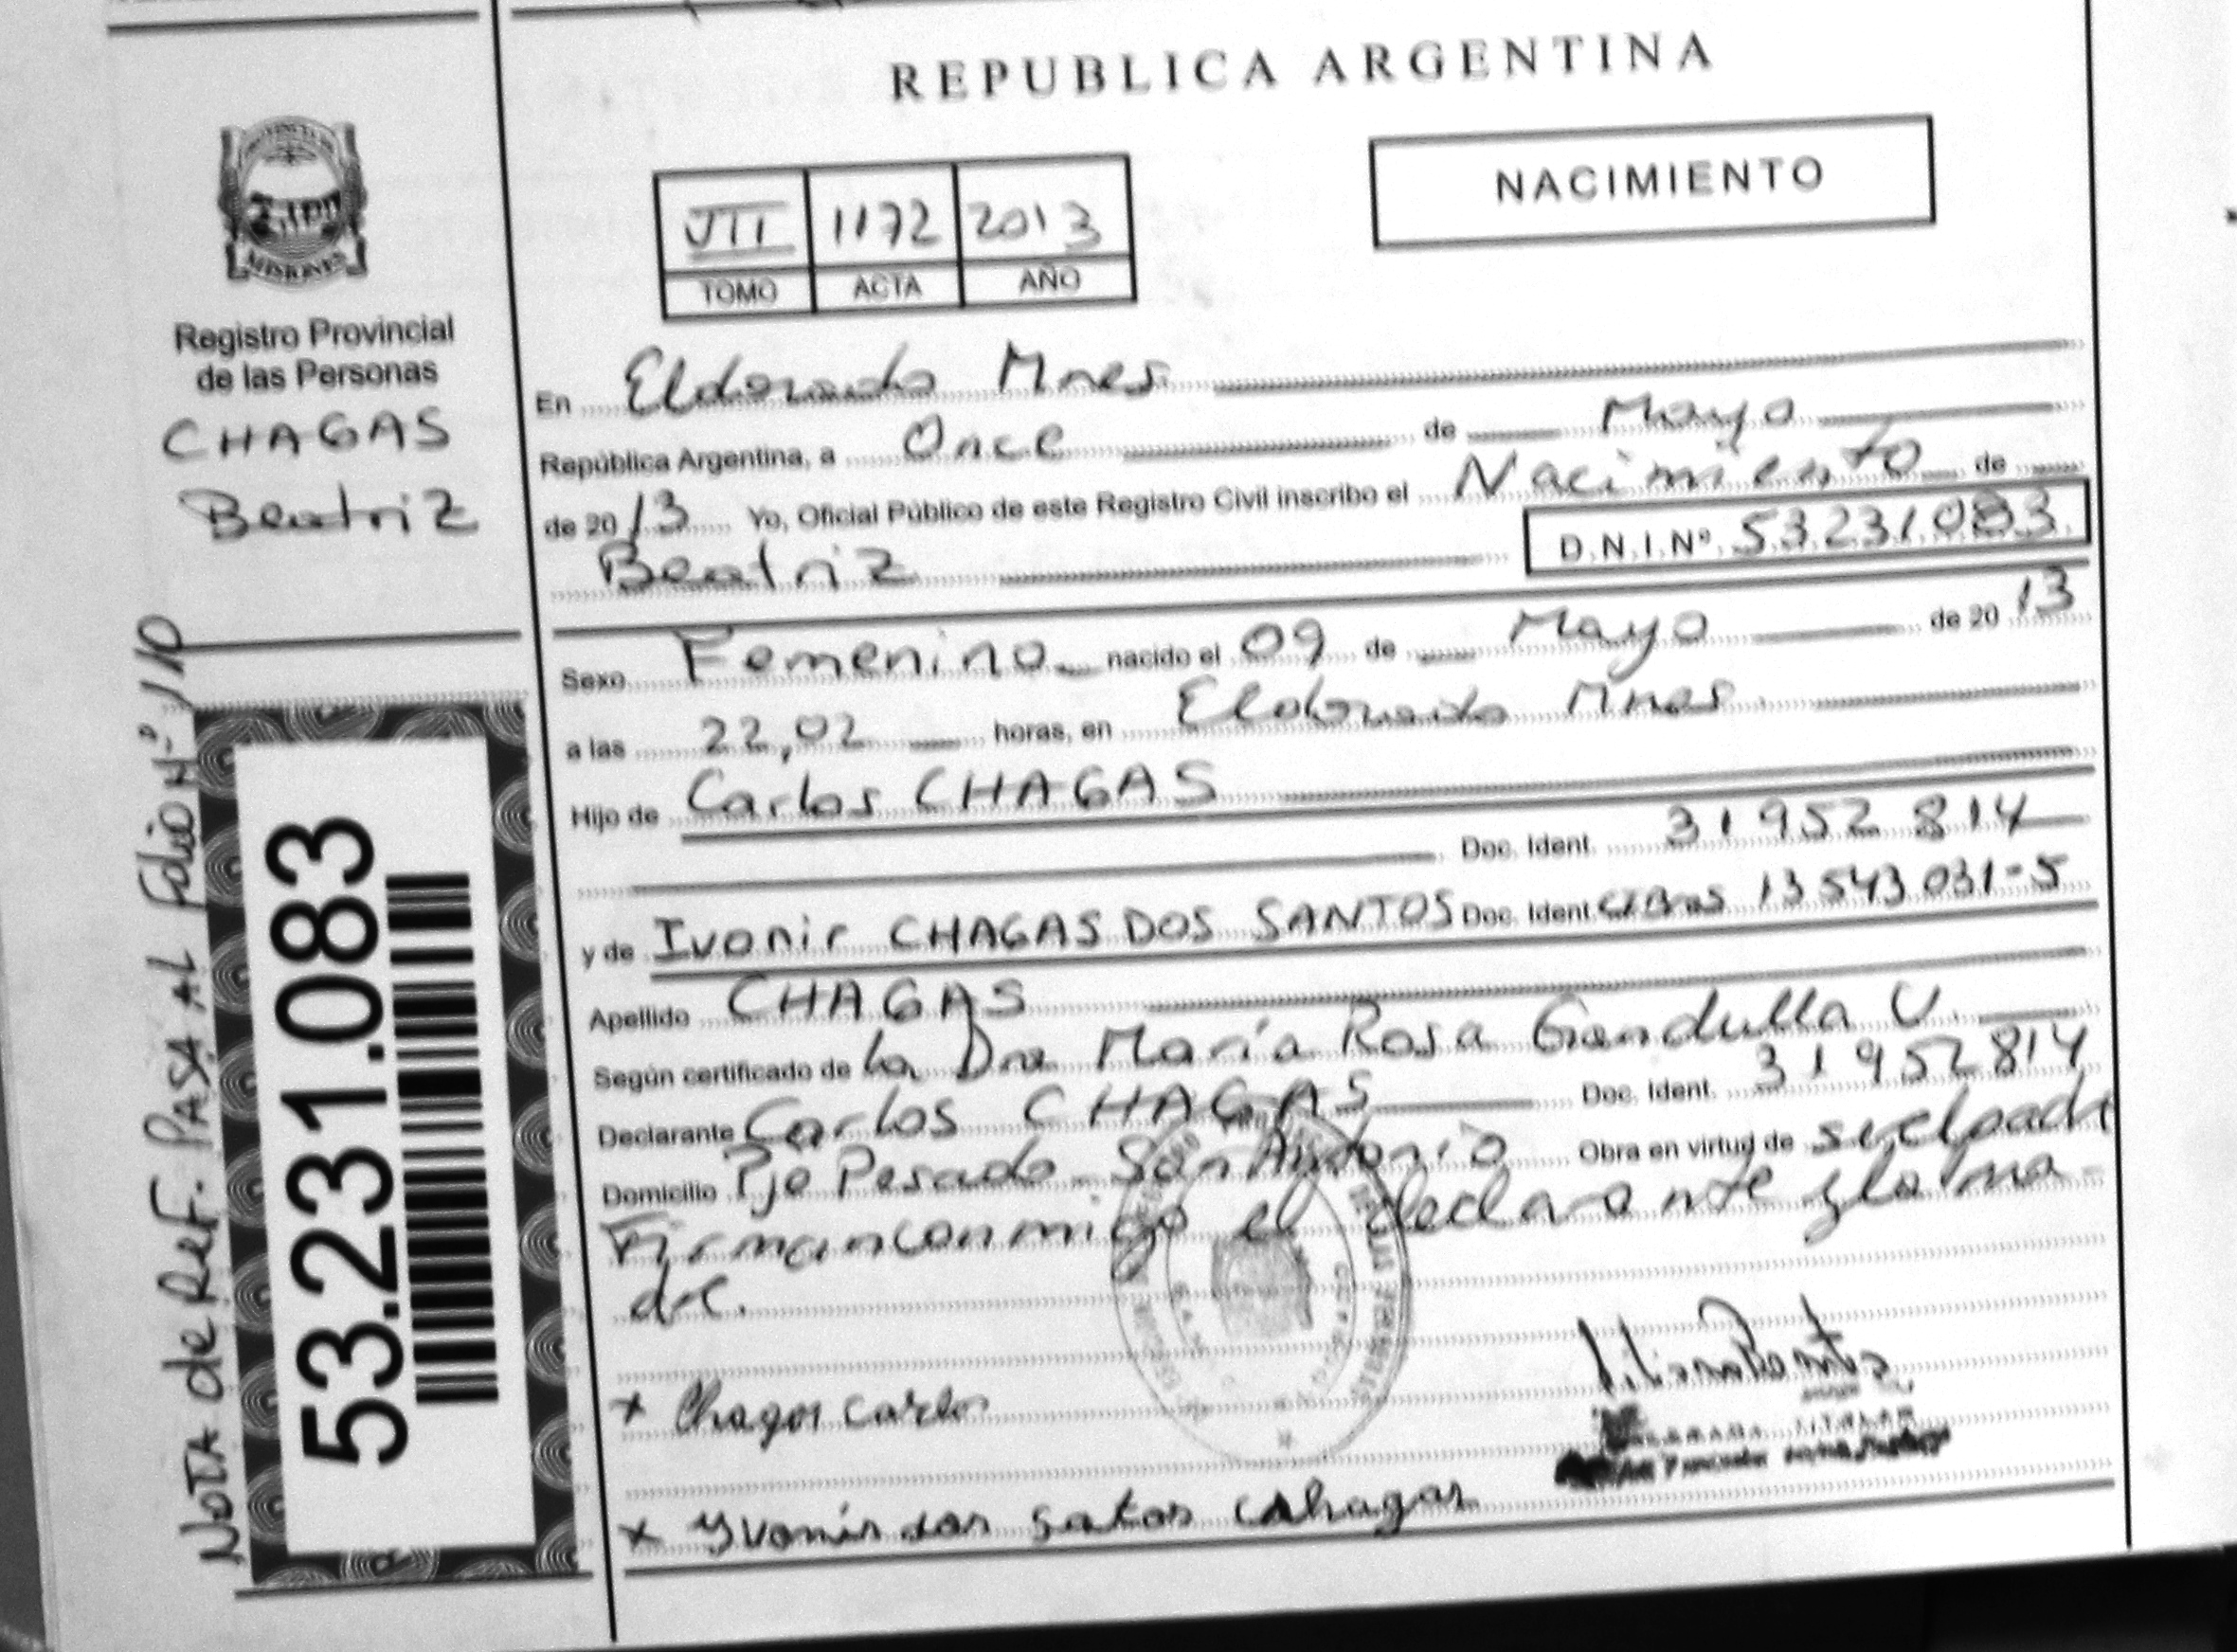 REPUBLICA ARGENTINA
NACIMIENTO
VII 1172 2013
TOMO ACTA AÑO
MISIONES
Registro Provincial
de las Personas
CHAGAS
Beatriz
En Eldorado Mnes
República Argentina, a Once de Mayo
de 2013 Yo, Oficial Público de este Registro Civil inscribo el Nacimiento de
Beatriz D.N.I.Nº 53231083
Sexo Femenino nacido el 09 de Mayo de 2013
a las 22,02 horas, en Eldorado Mnes
Hijo de Carlos CHAGAS
Doc. Ident. 31952814
y de Ivonir CHAGAS DOS SANTOS Doc. Ident. 13543031-5
Apellido CHAGAS
Según certificado de la Dra María Rosa Gandulla V.
Declarante Carlos CHAGAS Doc. Ident. 31952814
Domicilio Pje Pesado San Antonio Obra en virtud de
Firman conmigo el declarante y la ma-
dre.
x Chagas Carlos
x Yvonir dos satos Chagas
NOTA de ReF. PASA AL Folio Nº 110
53.231.083